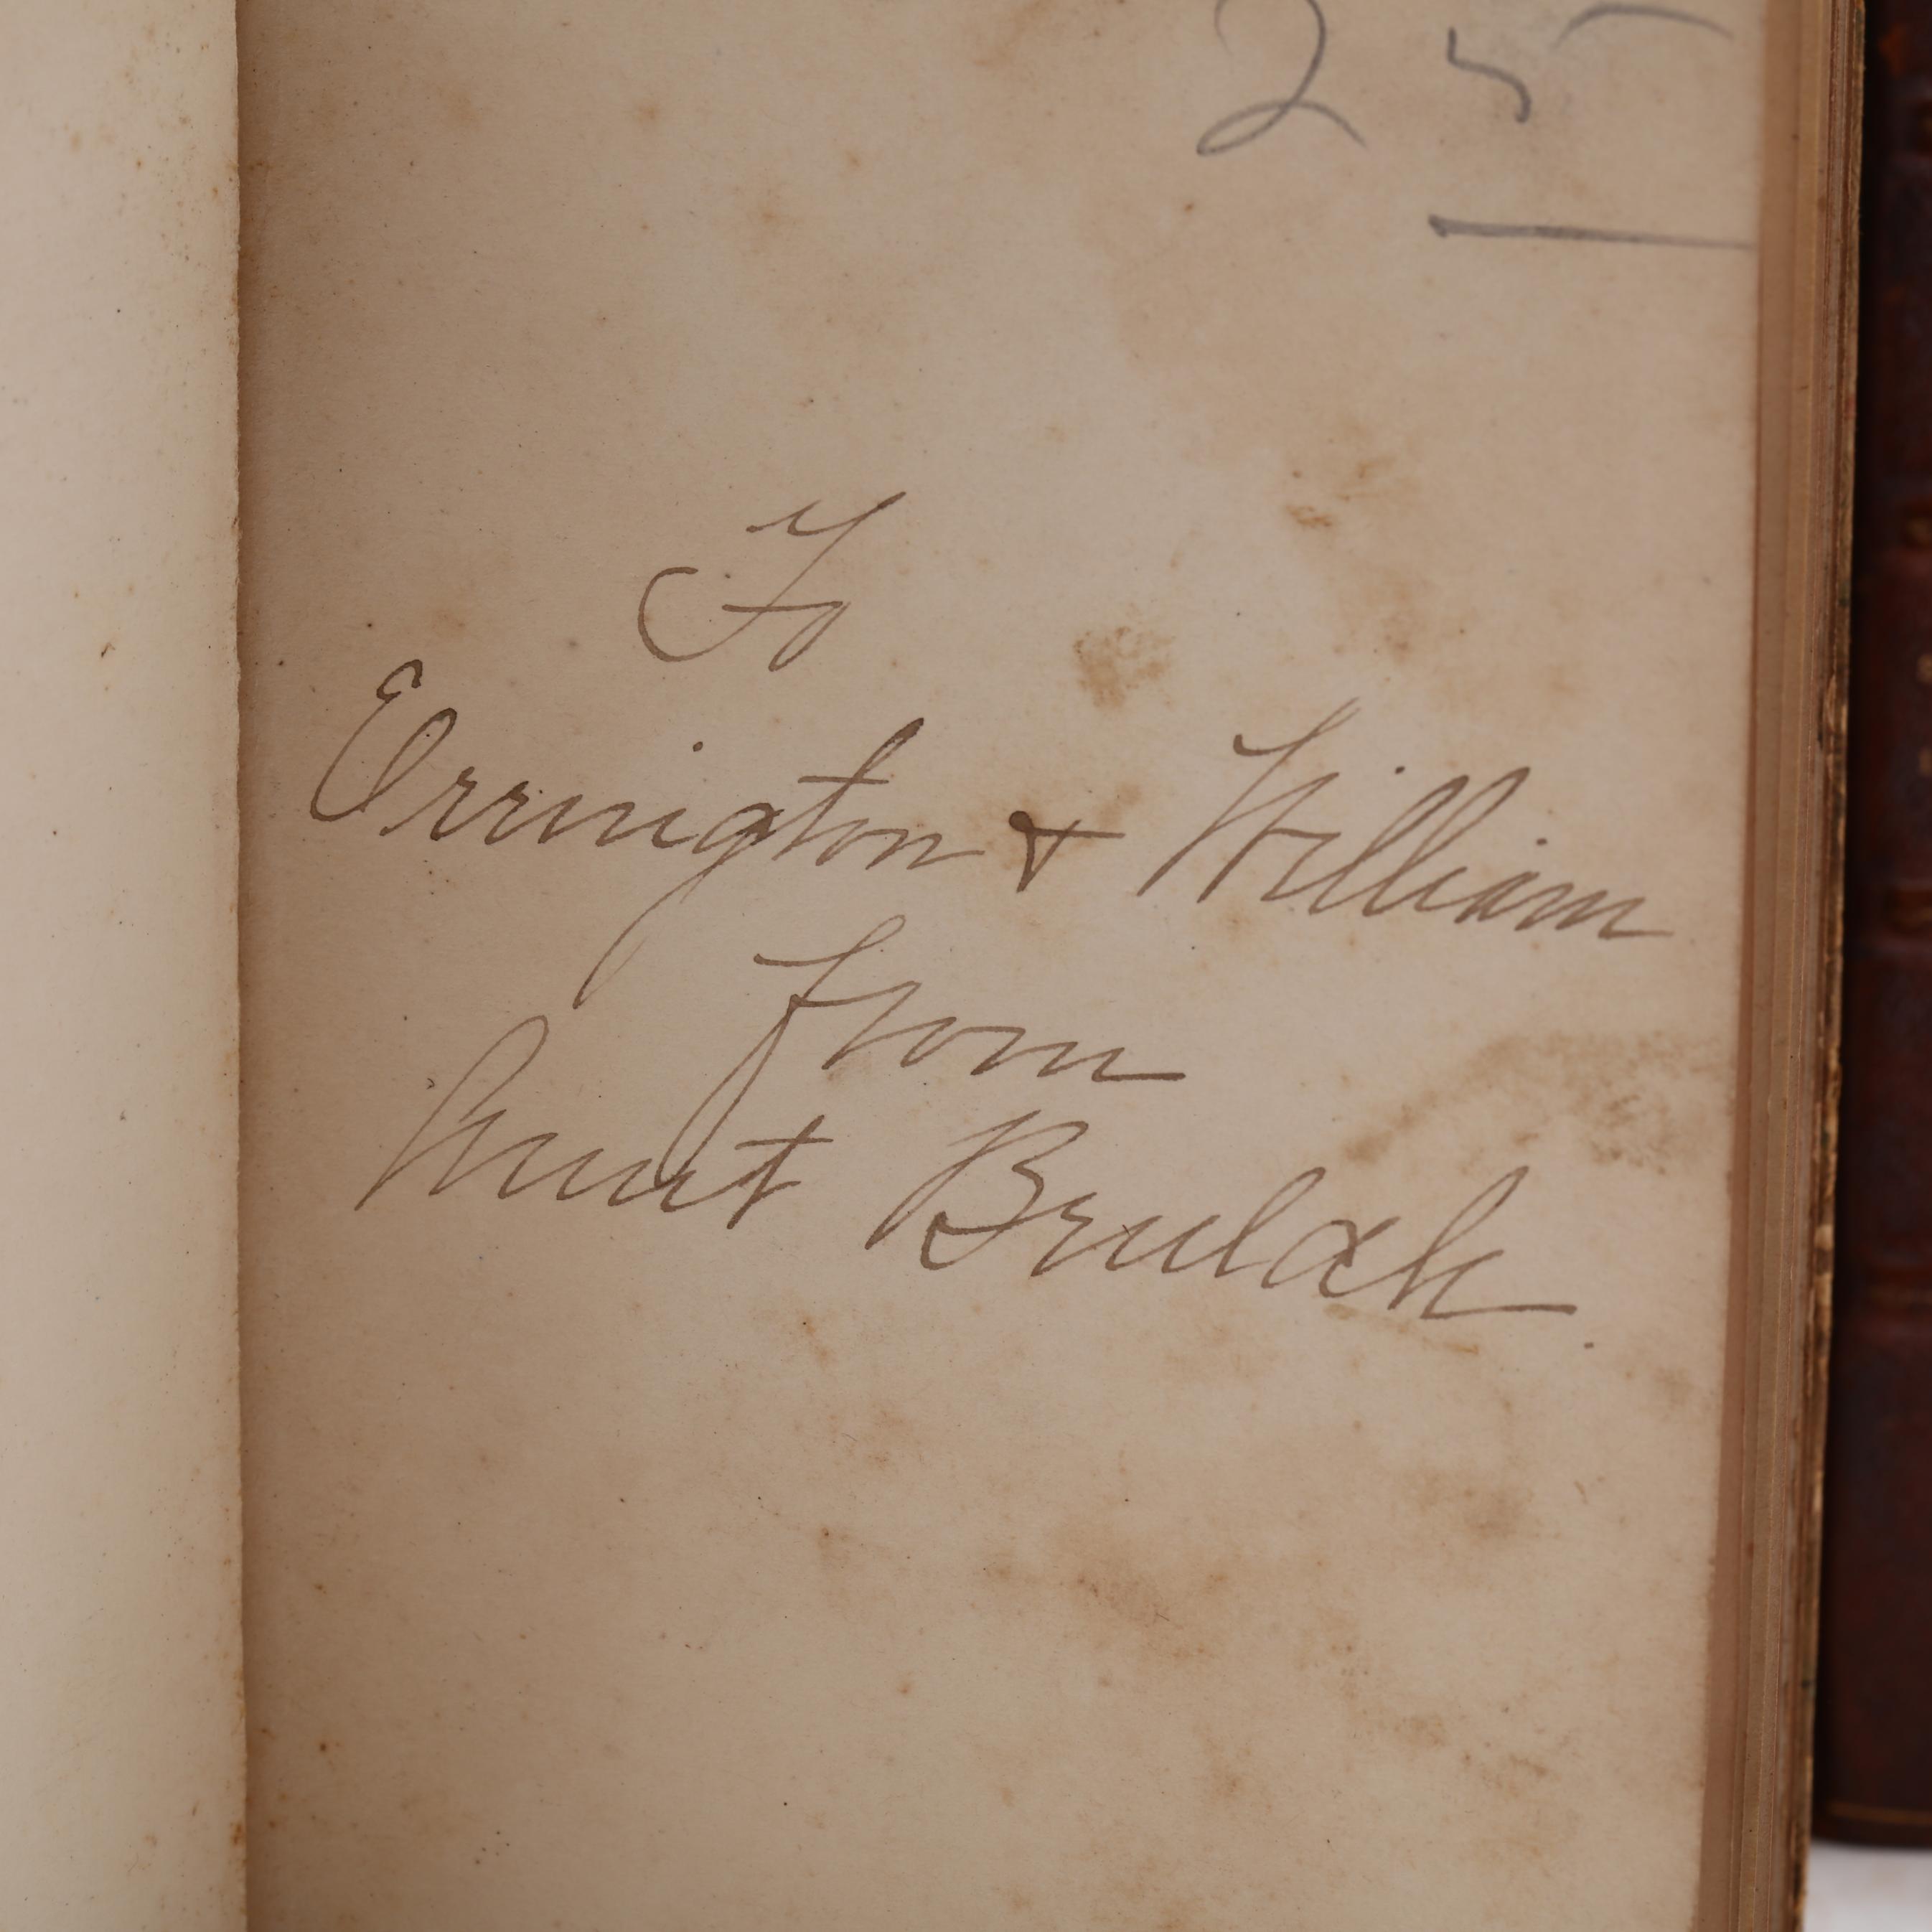 25
To
Errington & William
from
Aunt Beulah